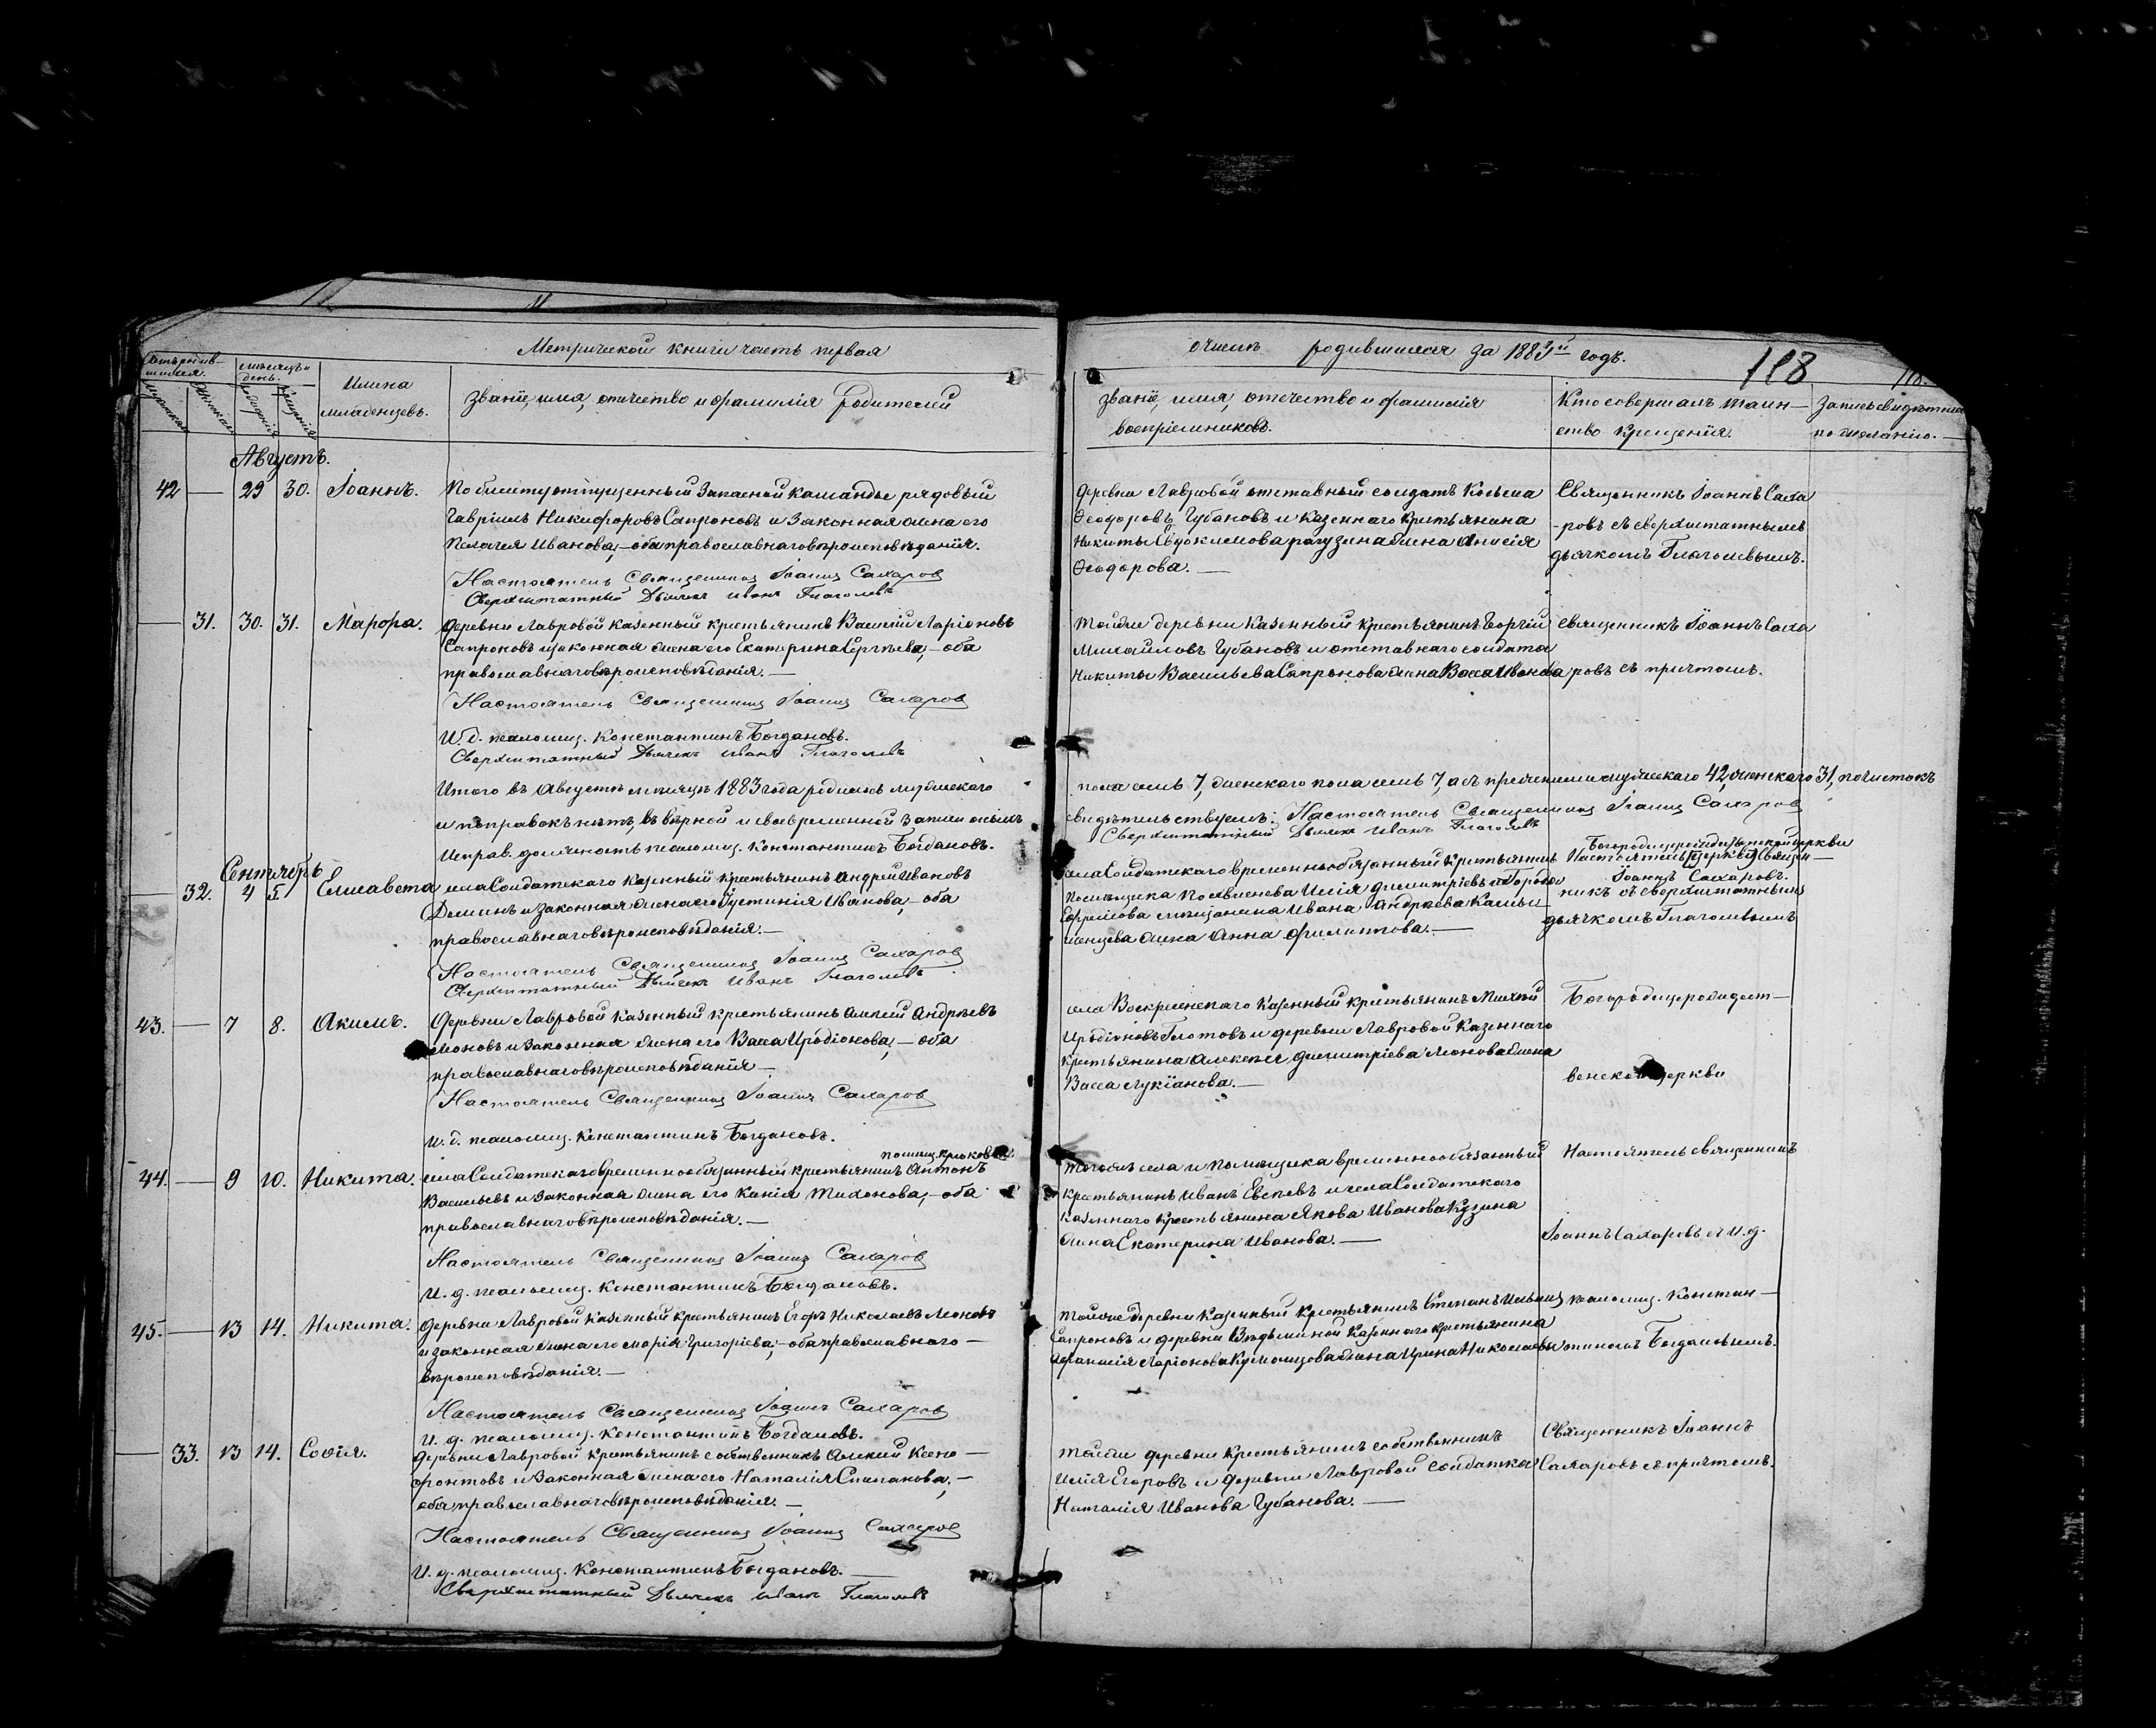 Метрической книги часть первая
о числѣ родившихся за 1883й годъ.
118
118.
мѣсяцъ и день.
Имена младенцевъ.
Званіе, имя, отчество и фамилія родителей
Званіе, имя, отчество и фамилія воспріемниковъ.
Кто совершалъ таинство крещенія.
по желанію.
Августъ.
42 — 29 30. Іоаннъ.
По билету отпущенный Запасной Командѣ рядовый
Гавріилъ Никифоровъ Сапроновъ и Законная жена его
Пелагея Иванова, — оба православнаго вѣроисповѣданія.
Настоятель Священникъ Іоаннъ Сахаров
Сверхштатный Дьячекъ Иванъ Глаголевъ
Деревни Лавровой отставный солдатъ Косьма
Ѳеодоровъ Губановъ и казеннаго крестьянина
Никиты Евдокимова жена Анисія
Ѳеодорова. —
Священникъ Іоаннъ Саха
-ровъ съ сверхштатнымъ
дьячкомъ Глаголевымъ.
— 31. 30. 31. Марѳа.
Деревни Лавровой казенный крестьянинъ Василій Ларіоновъ
Сапроновъ и законная жена его Екатерина Сергѣева, — оба
православнаго вѣроисповѣданія. —
Настоятель Священникъ Іоаннъ Сахаров
И. д. псаломщ. Константинъ Богдановъ.
Сверхштатный Дьячекъ Иванъ Глаголевъ
Тойже деревни казенный крестьянинъ Георгій
Михайловъ Губановъ и отставнаго солдата
Никиты Васильева Сапронова жена Васса Иванова
Священникъ Іоаннъ Саха
ровъ съ причтомъ.
Итого въ Августѣ мѣсяцѣ 1883 года родилось мужескаго
и поправокъ нѣтъ, въ вѣрной и своевременной записи онымъ
Исправ. должность псаломщ. Константинъ Богдановъ.
пола семь 7, женскаго пола семь 7, а съ прежними мужескаго 42, женскаго 31, почистокъ
свидѣтельствуемъ: Настоятель Священникъ Іоаннъ Сахаров
Сверхштатный Дьячекъ Иванъ Глаголевъ
Сентябрь
— 32. 4 5. Елисавета
села Солдатскаго казенный крестьянинъ Андрей Ивановъ
Деминъ и законная жена его Іустинія Иванова, — оба
православнаго вѣроисповѣданія. —
Настоятель Священникъ Іоаннъ Сахаров
Сверхштатный Дьячекъ Иванъ Глаголевъ
села Солдатскаго временнообязанный крестьянинъ
Помѣщика Илія Димитріевъ и города
Ефремова мѣщанина Ивана Андреева
жена Анна Филиппова. —
Богородицерождественской церкви
Настоятель Священ—
Іоаннъ Сахаровъ.
никъ съ сверхштатнымъ
дьячкомъ Глаголевымъ
43. — 7 8. Акимъ.
Деревни Лавровой казенный крестьянинъ Алексѣй Андреевъ
Леоновъ и Законная жена его Васса Иродіонова, — оба
православнаго вѣроисповѣданія —
Настоятель Священникъ Іоаннъ Сахаров
И. д. псаломщ. Константинъ Богдановъ.
села Воскресенскаго казенный крестьянинъ
Иродіоновъ Глотовъ и деревни Лавровой казеннаго
крестьянина Алексѣя Димитріева Леонова жена
Васса Лукіанова. —
Богородицерождест—
венской церкви
44. — 9 10. Никита.
помѣщ. Крюкова
села Солдатскаго временнообязанный крестьянинъ Антонъ
Васильевъ и Законная жена его Ксенія Тихонова, — оба
православнаго вѣроисповѣданія. —
Настоятель Священникъ Іоаннъ Сахаров
И. д. псаломщ. Константинъ Богдановъ.
тогожъ села и помѣщика временнообязанный
крестьянинъ Иванъ и села Солдатскаго
казеннаго крестьянина Якова Иванова Кузина
жена Екатерина Иванова. —
Настоятель священникъ
Іоаннъ Сахаровъ съ И. д.
45. — 13 14. Никита.
Деревни Лавровой казенный крестьянинъ Егоръ Николаевъ Леоновъ
и законная жена его Марія Григоріева, — оба православнаго —
вѣроисповѣданія. —
Настоятель Священникъ Іоаннъ Сахаров
И. д. псаломщ. Константинъ Богдановъ.
Тойже деревни казенный крестьянинъ Степанъ Ильинъ
Сапроновъ и деревни казеннаго крестьянина
Ларіонова жена Ирина Николаева
псаломщ. Констан—
тиномъ Богдановымъ.
— 33. 13 14. Софія.
Деревни Лавровой крестьянинъ собственникъ Алексѣй Ксено—
фонтовъ и Законная жена его Наталія Степанова, —
оба православнаго вѣроисповѣданія. —
Настоятель Священникъ Іоаннъ Сахаров
И. д. псаломщ. Константинъ Богдановъ. —
Сверхштатный Дьячекъ Иванъ Глаголевъ
Тойже деревни крестьянинъ собственникъ
Илія Егоровъ и деревни Лавровой солдатка
Наталія Иванова Губанова. —
Священникъ Іоаннъ
Сахаровъ съ причтомъ.